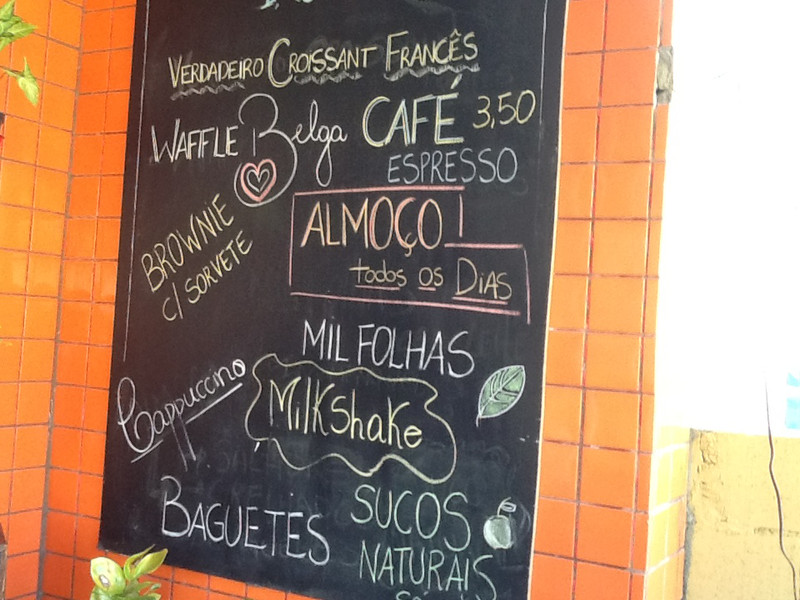 VERDADEIRO CROISSANT FRANCÊS
WAFFLE Belga
CAFÉ 3,50
ESPRESSO
BROWNIE
C/ SORVETE
ALMOÇO
todos os DIAS
MIL FOLHAS
Cappuccino
MilKShaKe
BAGUETES
SUCOS
NATURAIS